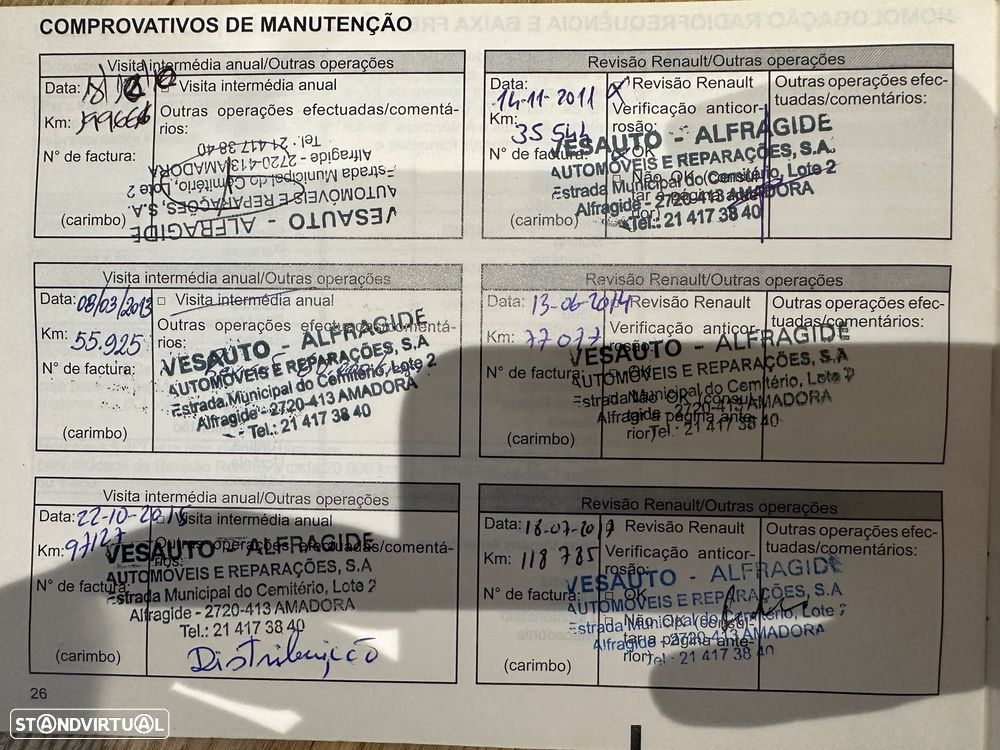 COMPROVATIVOS DE MANUTENÇÃO
Visita intermédia anual/Outras operações
Data:
Visita intermédia anual
Km:
Outras operações efectuadas/comentá-
rios:
N° de factura:
(carimbo)
VESAUTO - ALFRAGIDE
AUTOMÓVEIS E REPARAÇÕES, S.A.
Estrada Municipal do Cemitério, Lote 2
Alfragide - 2720-413 AMADORA
Tel.: 21 417 38 40
Revisão Renault/Outras operações
Data: 14-11-2011
Revisão Renault
Outras operações efec-
tuadas/comentários:
Km: 35 544
Verificação anticor-
rosão:
N° de factura:
OK
Não OK (consul-
tar a página ante-
rior)
(carimbo)
VESAUTO - ALFRAGIDE
AUTOMÓVEIS E REPARAÇÕES, S.A.
Estrada Municipal do Cemitério, Lote 2
Alfragide - 2720-413 AMADORA
Tel.: 21 417 38 40
Visita intermédia anual/Outras operações
Data: 08/03/2013
Visita intermédia anual
Km: 55.925
Outras operações efectuadas/comentá-
rios:
N° de factura:
(carimbo)
VESAUTO - ALFRAGIDE
AUTOMÓVEIS E REPARAÇÕES, S.A
Estrada Municipal do Cemitério, Lote 2
Alfragide - 2720-413 AMADORA
Tel.: 21 417 38 40
Revisão Renault/Outras operações
Data: 13-06-2014
Revisão Renault
Outras operações efec-
tuadas/comentários:
Km: 77 077
Verificação anticor-
rosão:
N° de factura:
OK
Não OK (consul-
tar a página ante-
rior)
(carimbo)
VESAUTO - ALFRAGIDE
AUTOMÓVEIS E REPARAÇÕES, S.A
Estrada Municipal do Cemitério, Lote 2
Alfragide - 2720-413 AMADORA
Tel.: 21 417 38 40
Visita intermédia anual/Outras operações
Data: 22-10-2015
Visita intermédia anual
Km: 97127
Outras operações efectuadas/comentá-
rios:
N° de factura:
(carimbo)
VESAUTO - ALFRAGIDE
AUTOMÓVEIS E REPARAÇÕES, S.A
Estrada Municipal do Cemitério, Lote 2
Alfragide - 2720-413 AMADORA
Tel.: 21 417 38 40
Distribuição
Revisão Renault/Outras operações
Data: 18-07-2017
Revisão Renault
Outras operações efec-
tuadas/comentários:
Km: 118 785
Verificação anticor-
rosão:
N° de factura:
OK
Não OK (consul-
tar a página ante-
rior)
(carimbo)
VESAUTO - ALFRAGIDE
AUTOMÓVEIS E REPARAÇÕES, S.A
Estrada Municipal do Cemitério, Lote 2
Alfragide - 2720-413 AMADORA
Tel.: 21 417 38 40
26
STANDVIRTUAL